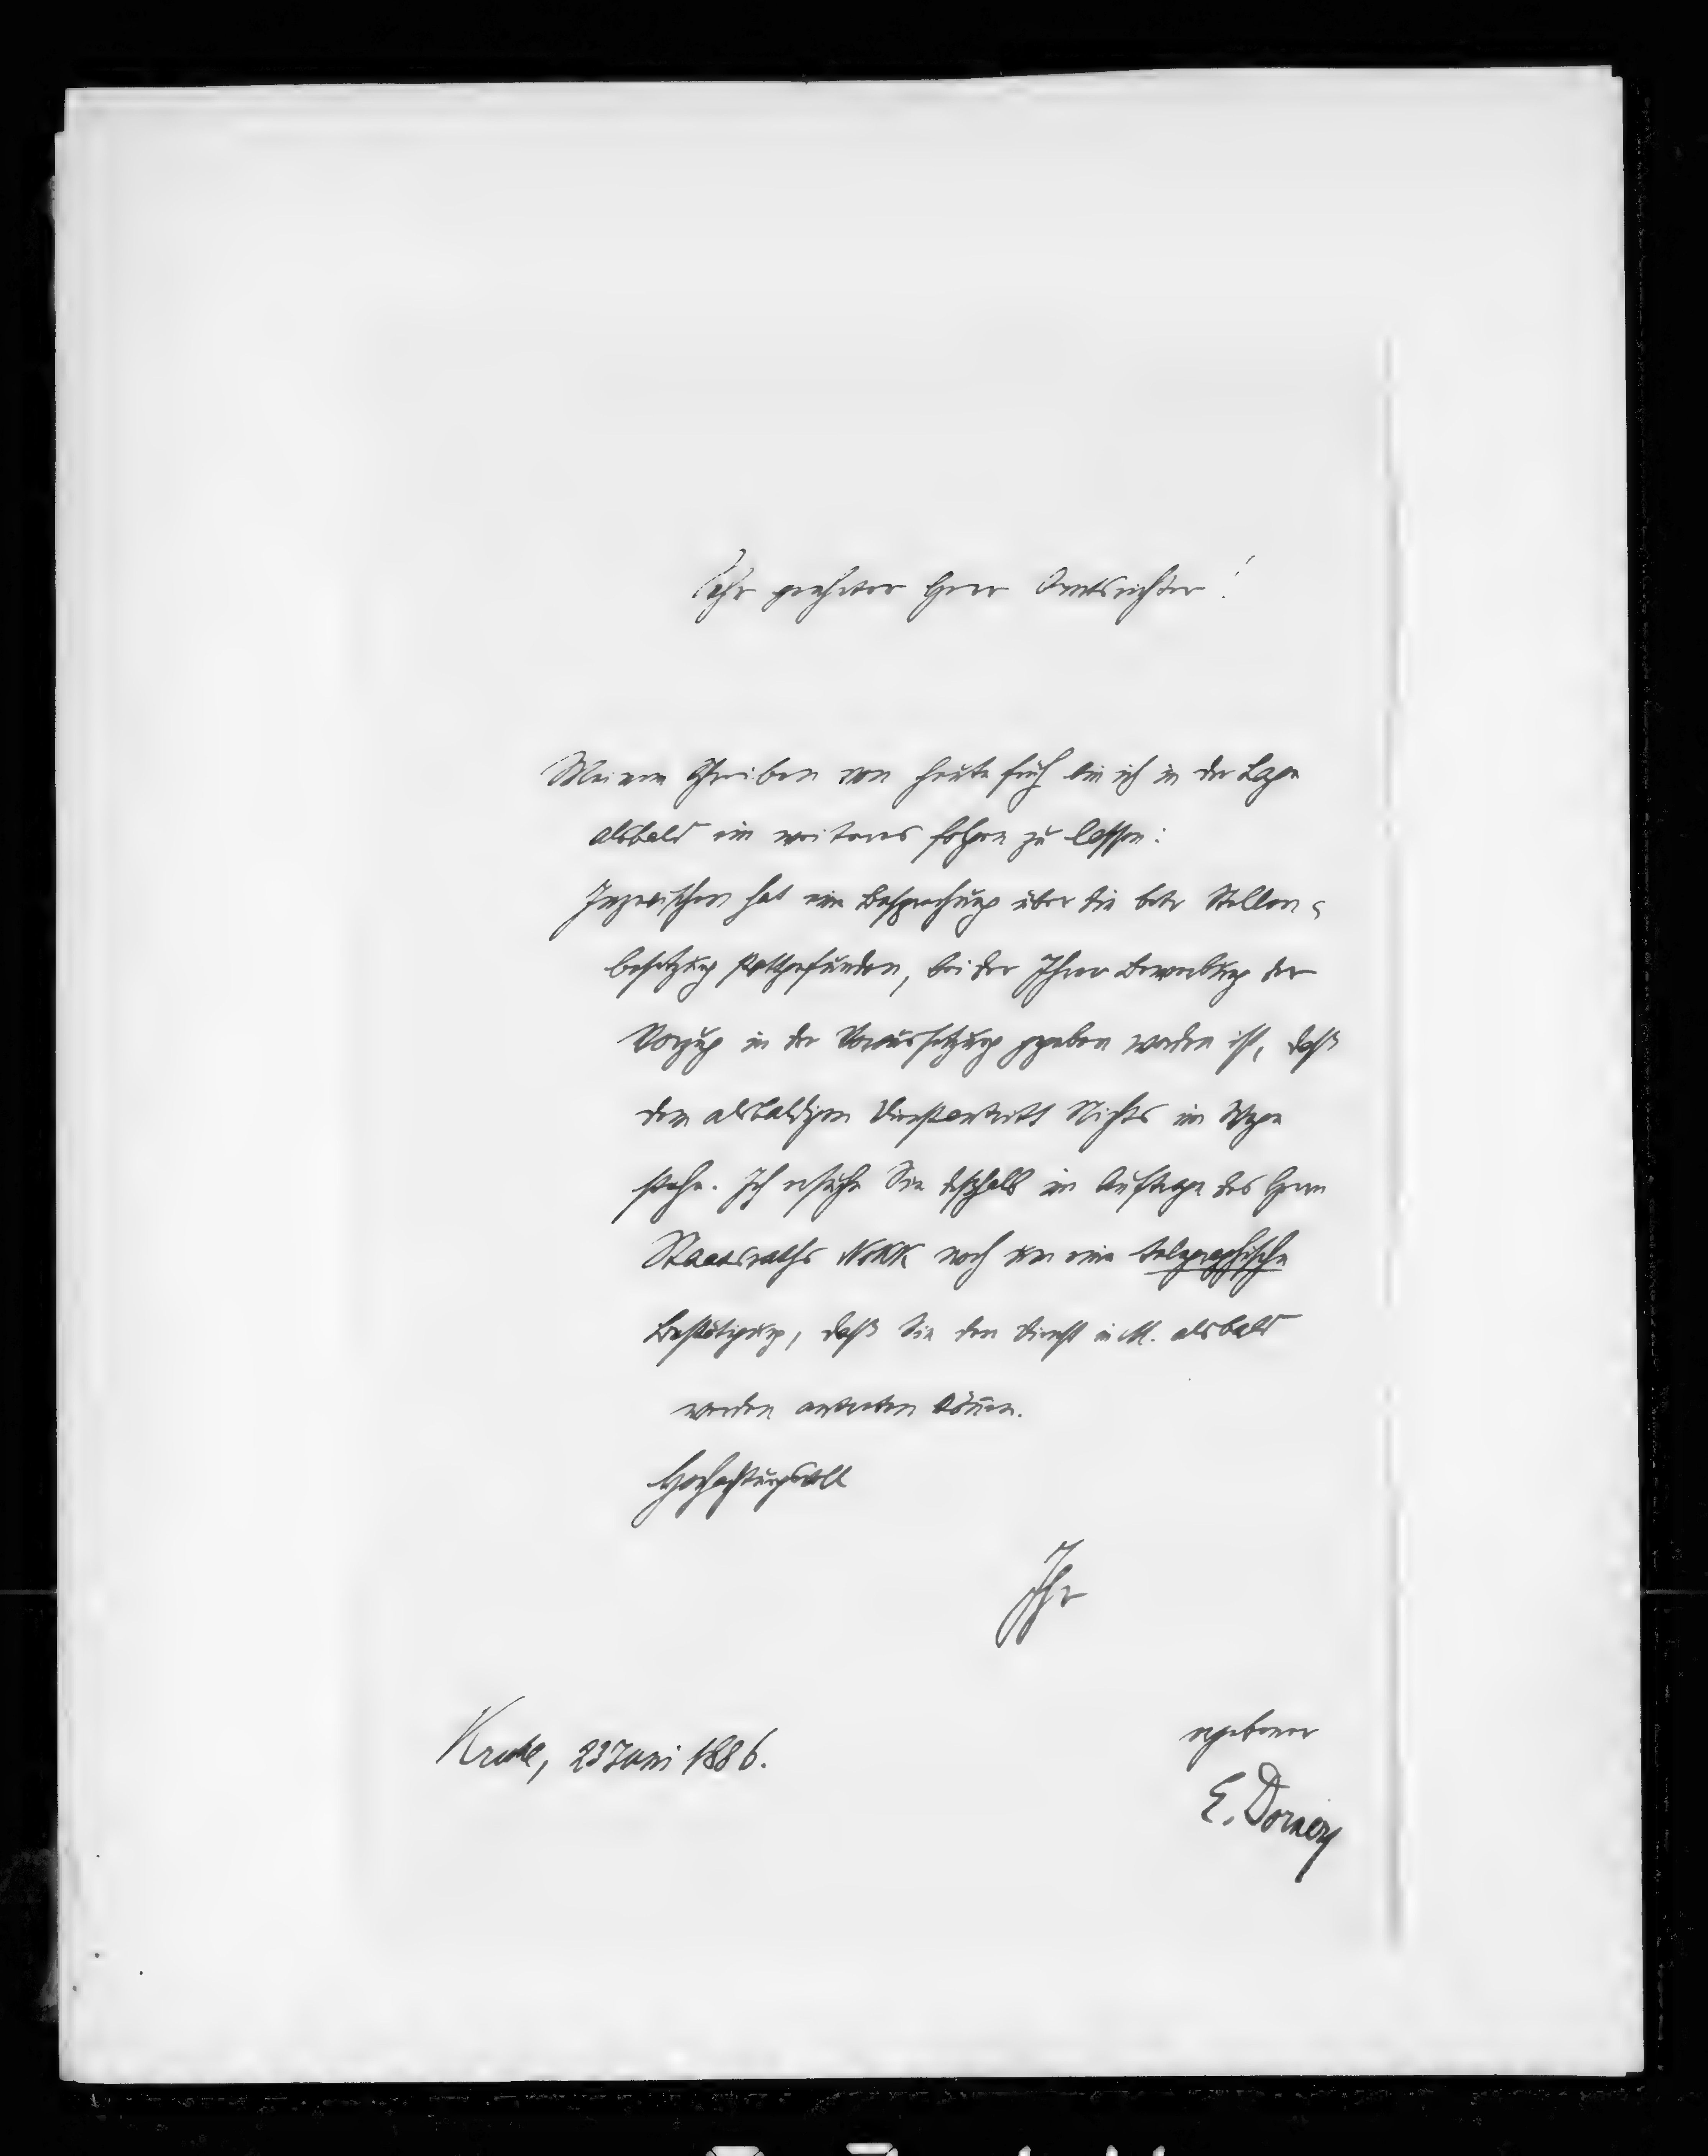 Sehr geehrter Herr Amtsrichter!
Meinem Schreiben von heute früh bin ich in der Lage
alsbald ein weiteres folgen zu lassen:
Inzwischen hat eine Besprechung über die betr Stellen-
besetzung stattgefunden, bei der Ihrer Bewerbung der
Vorzug in der Voraussetzung gegeben worden ist, daß
dem alsbaldigen Dienstantritt Nichts im Wege
stehe. Ich ersuche Sie deßhalb im Auftrage des Herrn
Staatsraths Nokk noch um eine telegraphische
Bestätigung, daß Sie den Dienst in M. alsbald
werden antreten können.
Hochachtungsvoll
Ihr
ergebener
Kruhe, 23 Juni 1886.
E. Dorner